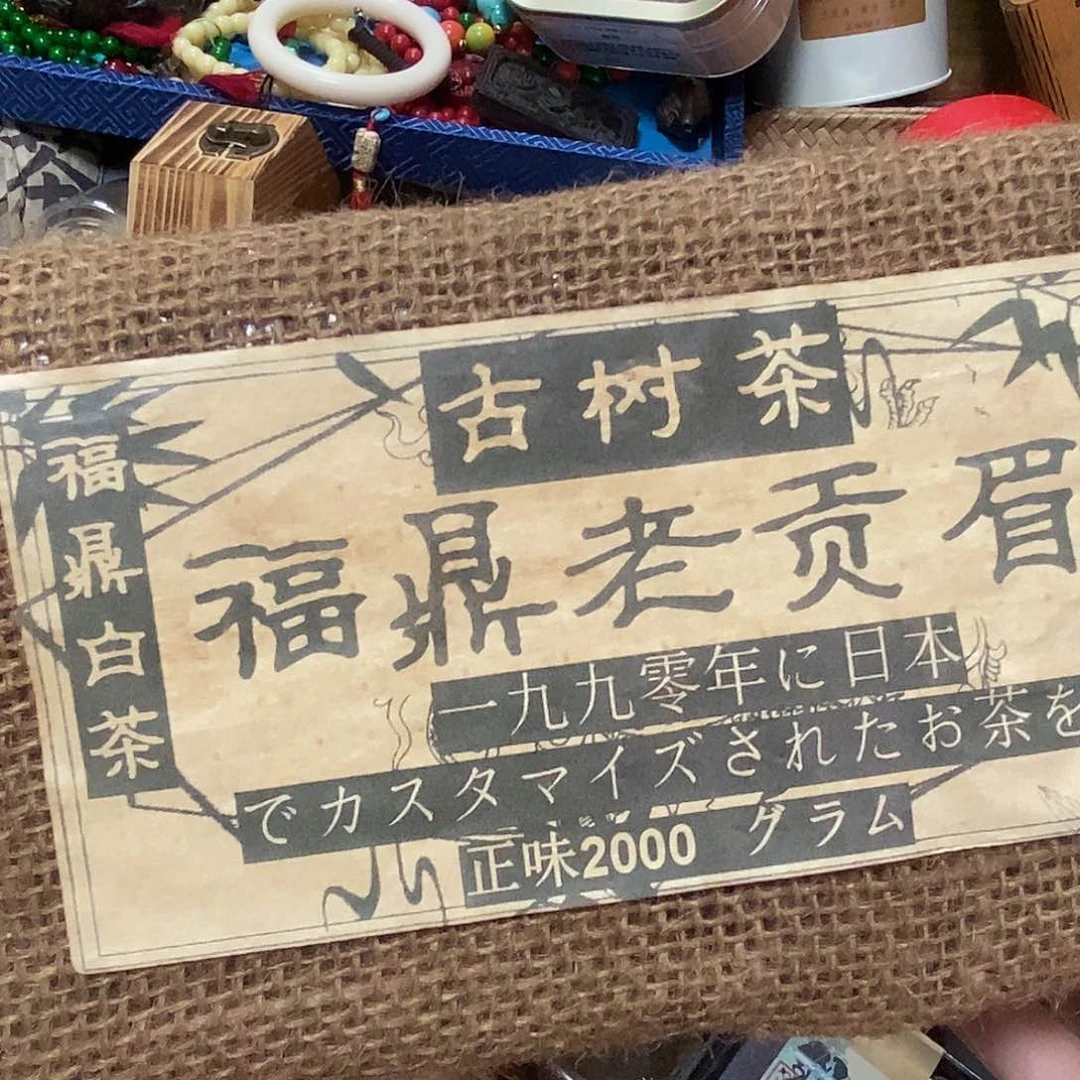 古树茶
福鼎白茶
福鼎老贡眉
一九九零年に日本
でカスタマイズされたお茶を
正味2000 グラム